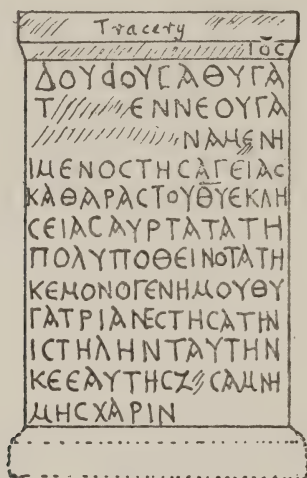 Tracery
ΙΟC
ΔΟΥδΟΥCΑΘΥΓΑ
Τ ΕΝΝΕΟΥΓΑ
ΝΑΜΕΝΗ
ΙΜΕΝΟCΤΗCΑΓΕΙΑC
ΚΑΘΑΡΑCΤΟΥΘ̅Υ̅ΕΚΛΗ
CΕΙΑCΑΥΡΤΑΤΑΤΗ
ΠΟΛΥΠΟΘΕΙΝΟΤΑΤΗ
ΚΕΜΟΝΟΓΕΝΗΜΟΥΘΥ
ΓΑΤΡΙΑΝΕCΤΗCΑΤΗΝ
ΙCΤΗΛΗΝΤΑΥΤΗΝ
ΚΕΕΑΥΤΗCΖ CΑΜΝΗ
ΜΗCΧΑΡΙΝ